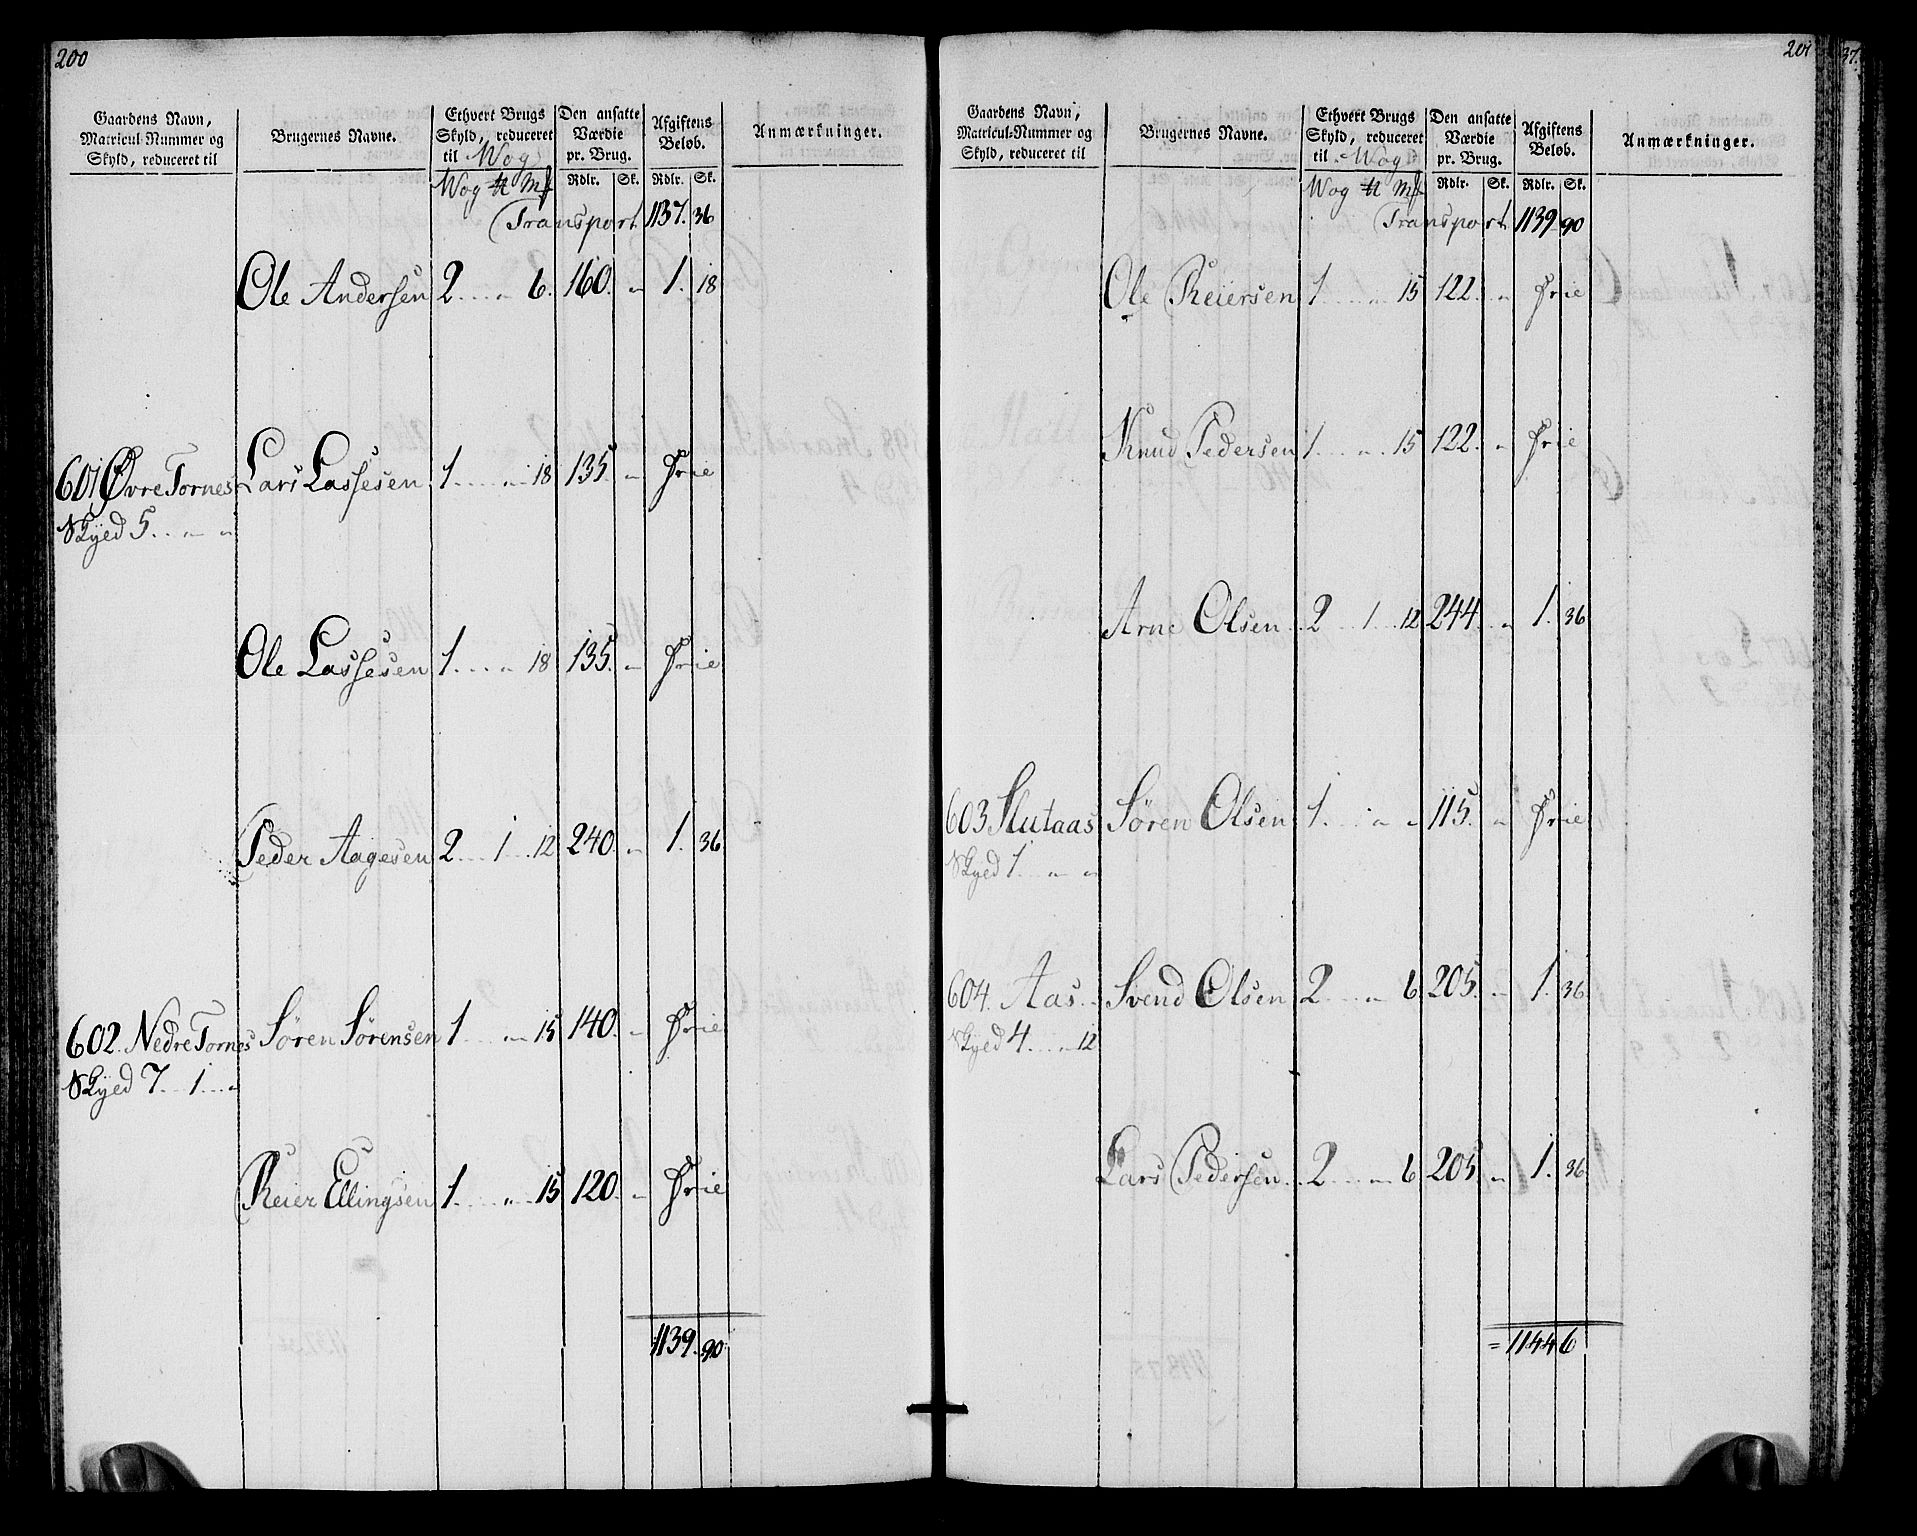 200
Gaardens Navn,
Matricul-Nummer og
Skyld, reduceret til
Brugernes Navne.
Ethvert Brugs
Skyld, reduceret
til Wog
Den ansatte
Værdie
pr. Brug.
Afgiftens
Beløb.
Anmærkninger.
Wog ℔ Mk Rdlr. Sk. Rdlr. Sk.
Transport 1137. 36
Ole Andersen 2 . . . „ 6. 160. „ 1. 18
601 Øvre Tornes Lars Lassesen 1 . . . „ 18 135 „ Frie
Skyed 5. . „ „
Ole Lassesen 1 . . . „ 18 135. „ Frie
Peder Aagesen 2 . . 1 . . 12 240. „ 1. 36
602. Nedre Tornes Søren Sørensen 1 . . . „ 15 140. „ Frie
Skyed 7 . . 1 . . „
Reier Ellingsen 1 . . . „ 15 120. „ Frie
1139. 90.
201
Gaardens Navn,
Matricul-Nummer og
Skyld, reduceret til
Brugernes Navne.
Ethvert Brugs
Skyld, reduceret
til Wog
Den ansatte
Værdie
pr. Brug.
Afgiftens
Beløb.
Anmærkninger.
Wog ℔ Mk Rdlr. Sk. Rdlr. Sk.
Transport 1139. 90
Ole Reiersen 1 . . . „ 15 122. „ Frie
Knud Pedersen 1 . . . „ 15 122. „ Frie
Arne Olsen 2 . . 1 . . 12 244. „ 1. 36
603 Slutaas Søren Olsen 1 . . . „ „ 115. „ Frie
Skyed 1 . . „ „
604. Aas Svend Olsen 2 . . . „ 6. 205. „ 1. 36
Skyed 4 . . . „ 12
Lars Pedersen 2 . . . „ 6 205 „ 1. 36
= 1144 6
37.